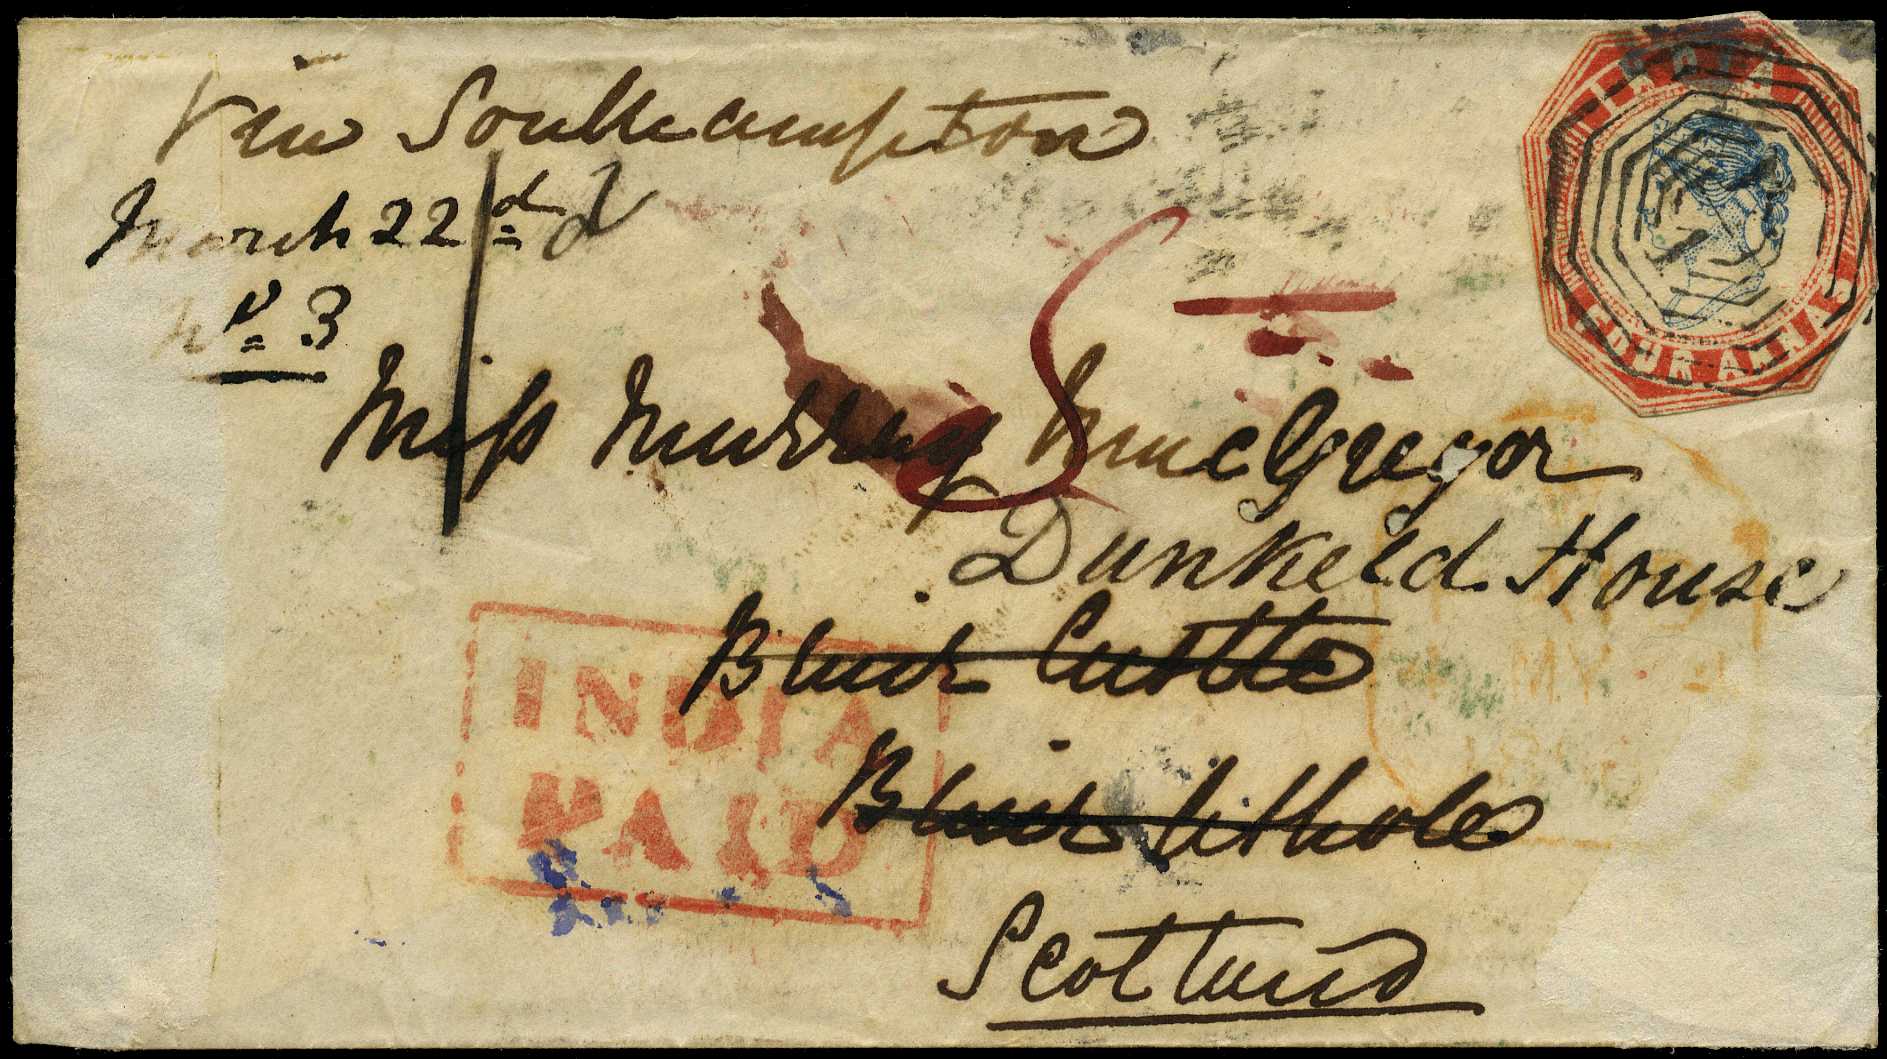 Via Southampton
INDIA
FOUR ANNAS
March 22d
No. 3
Miss Murray MacGregor
Dunkeld House
Blair Castle
Blair Athole
Scotland
INDIA
PAID